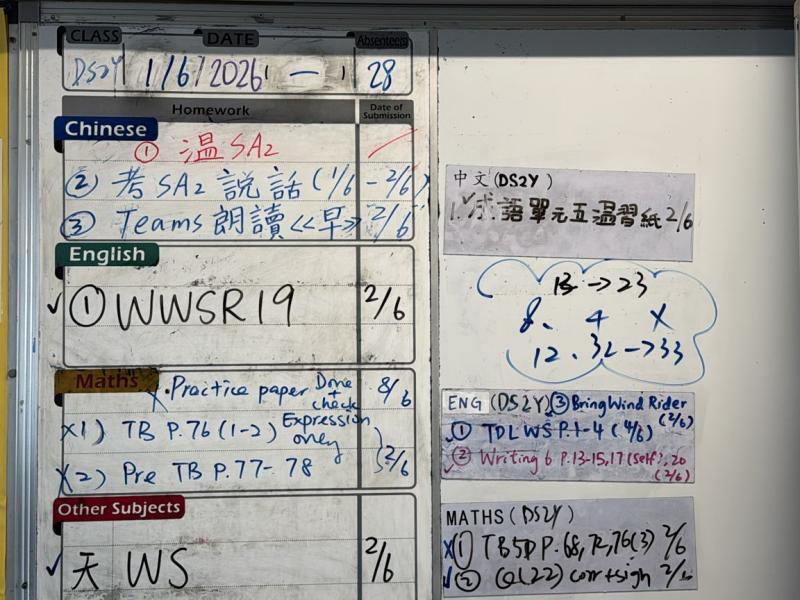 CLASS DATE Absentees
DS2Y 1/6/2026 一 28
Homework Date of Submission
Chinese
① 温 SA2
② 考 SA2 說話 (1/6 - 2/6)
③ Teams 朗讀《早》 2/6
English
✓ ① WWSR19 2/6
Maths
Practice paper Done + check 8/6
X 1) TB P.76 (1-2) Expression only
X 2) Pre TB P.77-78 2/6
Other Subjects
✓ 天 WS 2/6
中文 (DS2Y)
1. 成語單元五温習紙 2/6
13 → 23
8. 4 X
12. 32 → 33
ENG (DS2Y) ③ Bring Wind Rider (2/6)
✓ ① TDL WS P.1-4 (4/6)
✓ ② Writing 6 P.13-15, 17 (Self), 20 (2/6)
MATHS (DS2Y)
X ① TB5D P.68, 72, 76(3) 2/6
✓ ② Q(22) corr+sign